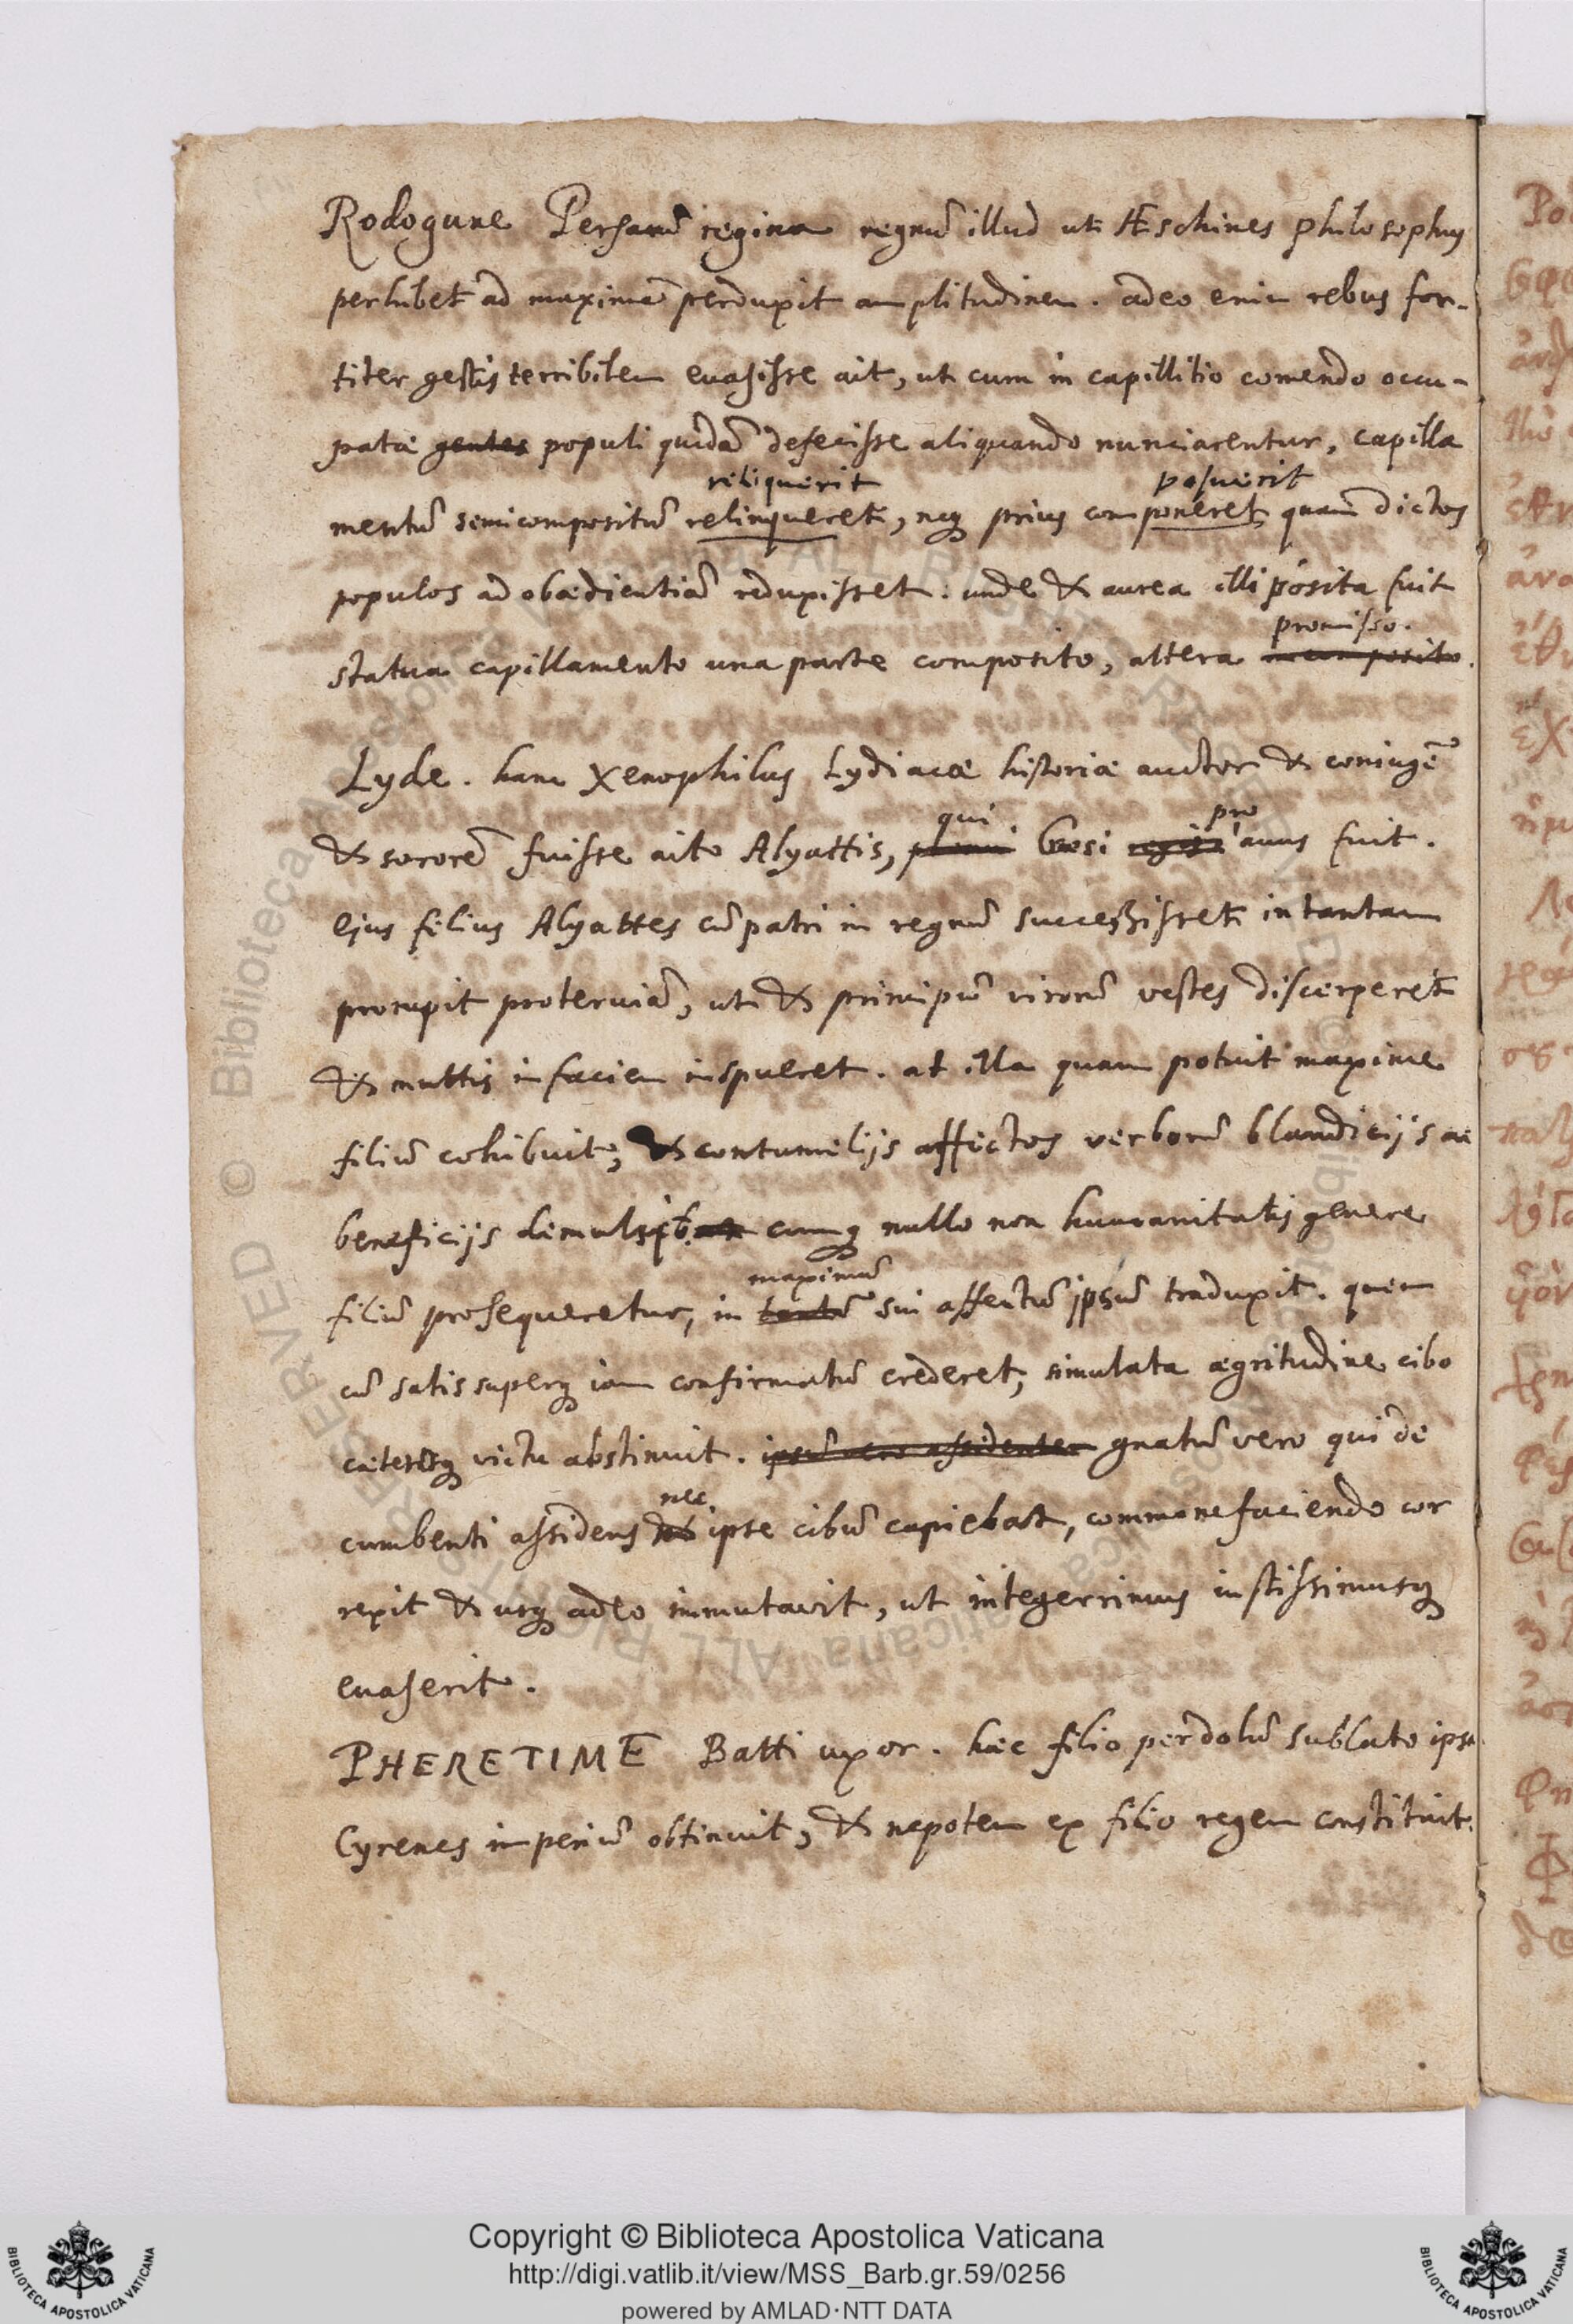 Rodogune Persarũ regina regnũ illud ut Æschines philosophus
perhibet ad maximã perduxit amplitudinem. adeo enim rebus for-
titer gestis terribilem euasisse ait, ut cum in capillitio comendo occu-
patæ gentes populi quidã defecisse aliquando nunciarentur, capilla
reliquerit posuerit
mentũ semicompositũ relinqueret, neq prius componeret quam dictos
populos ad obœdientiã reduxisset: unde & aurea illi posita fuit
promisso.
statua capillamento una parte composito, altera incomposito.
Lyde. hanc Xenophilus Lydiacæ historiæ auctor & coniugẽ
qui pro
& sororẽ fuisse ait Alyattis, Crœsi auus fuit.
ejus filius Alyattes cũ patri in regnũ successisset in tantam
prorupit proteruiã, ut & principũ virorũ vestes discerperet
& multis in faciem inspueret. at illa quam potuit maxime
filiũ cohibuit, & contumelijs affectos verborũ blandicijs ac
beneficijs demulsit cumq nullo non humanitatis genere
maximũ
filiũ prosequeretur, in tantũ sui affectũ ipsũ traduxit. quem
cũ satis superq iam confirmatũ crederet, simulata ægritudine cibo
cæteroq victu abstinuit. ipsũ vero assidentem gnatũ vero qui de
nec
cumbenti assidens ipse cibũ capiebat, commonefaciendo cor
rexit & usq adeo immutavit, ut integerrimus iustissimusq
euaserit.
PHERETIME Batti uxor. hæc filio per dolũ sublato ipsa
Cyrenes imperiũ obtinuit, & nepotem ex filio regem constituit.
Copyright © Biblioteca Apostolica Vaticana
http://digi.vatlib.it/view/MSS_Barb.gr.59/0256
powered by AMLAD·NTT DATA
BIBLIOTECA APOSTOLICA VATICANA
BIBLIOTECA APOSTOLICA VATICANA